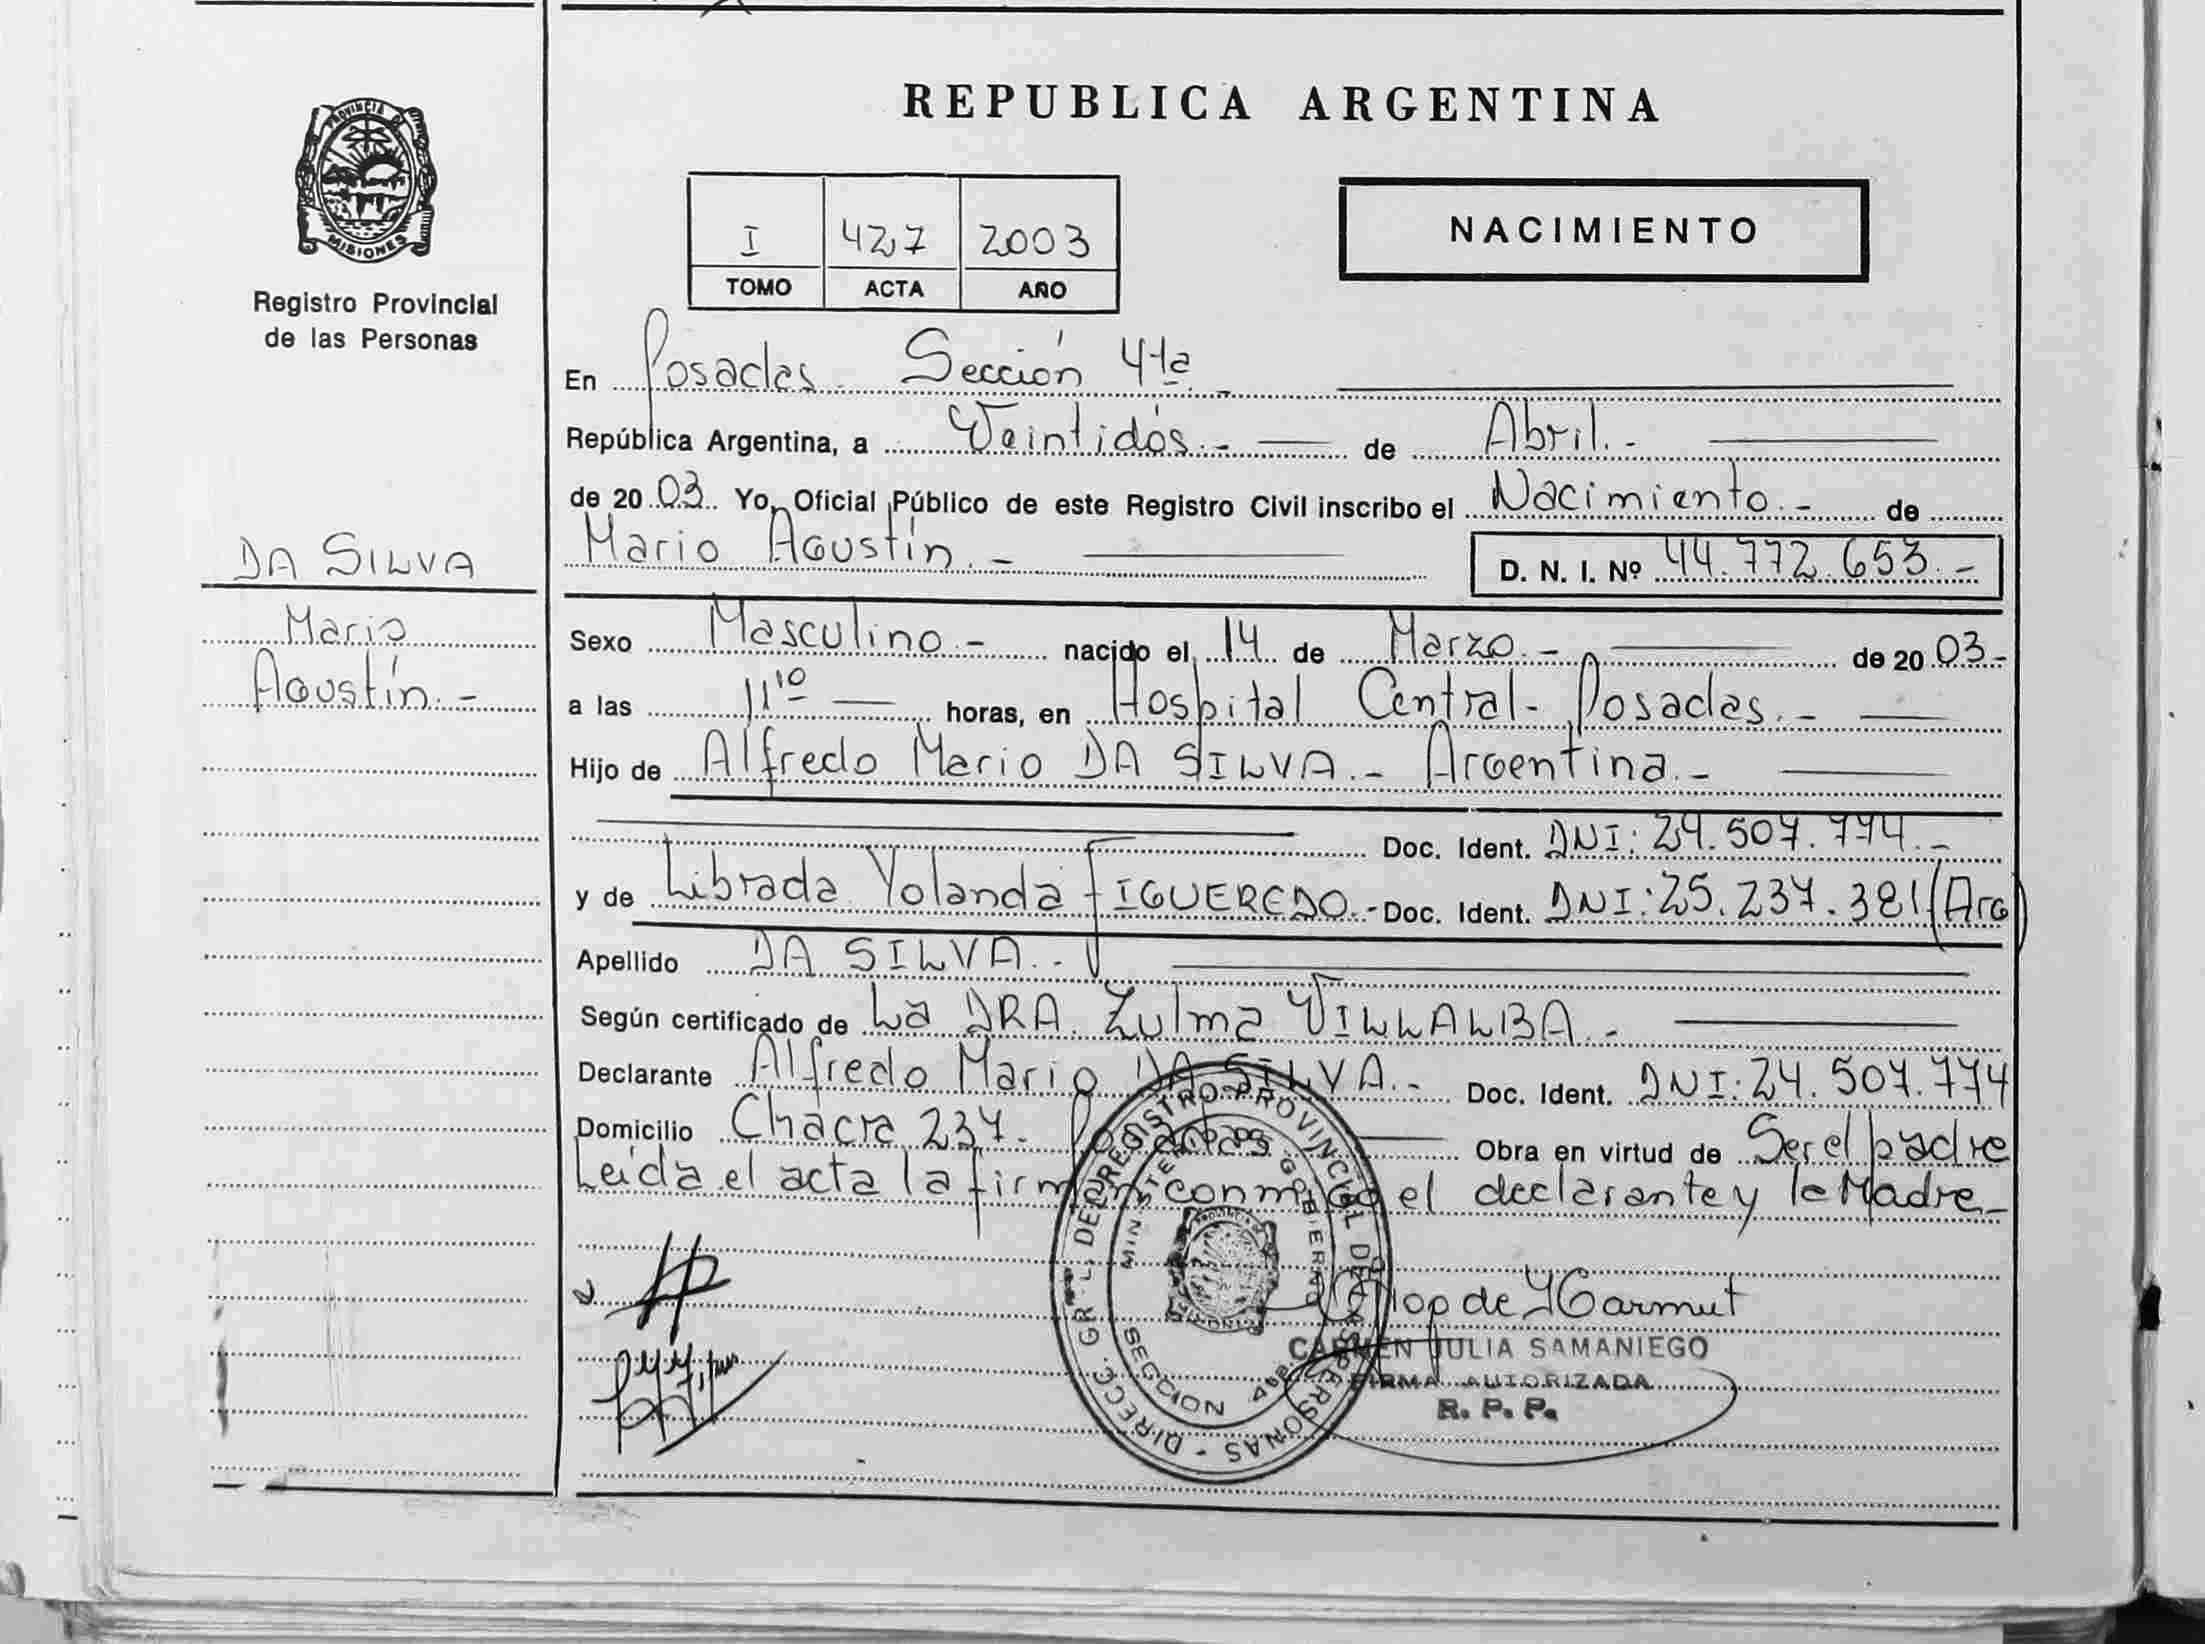 REPUBLICA ARGENTINA
PROVINCIA DE MISIONES
Registro Provincial
de las Personas
I 427 2003
TOMO ACTA AÑO
NACIMIENTO
En Posadas. Sección 4ta.-
República Argentina, a Veintidós.- de Abril.-
de 2003. Yo, Oficial Público de este Registro Civil inscribo el Nacimiento.- de
Mario Agustín.- D. N. I. Nº 44.772.653.-
DA SILVA
Mario
Agustín.-
Sexo Masculino.- nacido el 14 de Marzo.- de 2003.-
a las 11¹⁰ horas, en Hospital Central- Posadas.-
Hijo de Alfredo Mario DA SILVA.- Argentina.-
Doc. Ident. DNI: 24.507.774.-
y de Librada Yolanda FIGUEREDO.- Doc. Ident. DNI: 25.237.381 (Arg)
Apellido DA SILVA.-
Según certificado de La DRA. Zulma VILLALBA.-
Declarante Alfredo Mario DA SILVA.- Doc. Ident. DNI: 24.507.774
Domicilio Chacra 237. Posadas Obra en virtud de Ser el padre
Leída el acta la firman conmigo el declarante y la Madre.-
DIRECC. GRL. DEL REGISTRO PROVINCIAL DE LAS PERSONAS
MINISTERIO DE GOBIERNO
SECCION 4ta.
CARMEN JULIA SAMANIEGO
FIRMA AUTORIZADA
R. P. P.